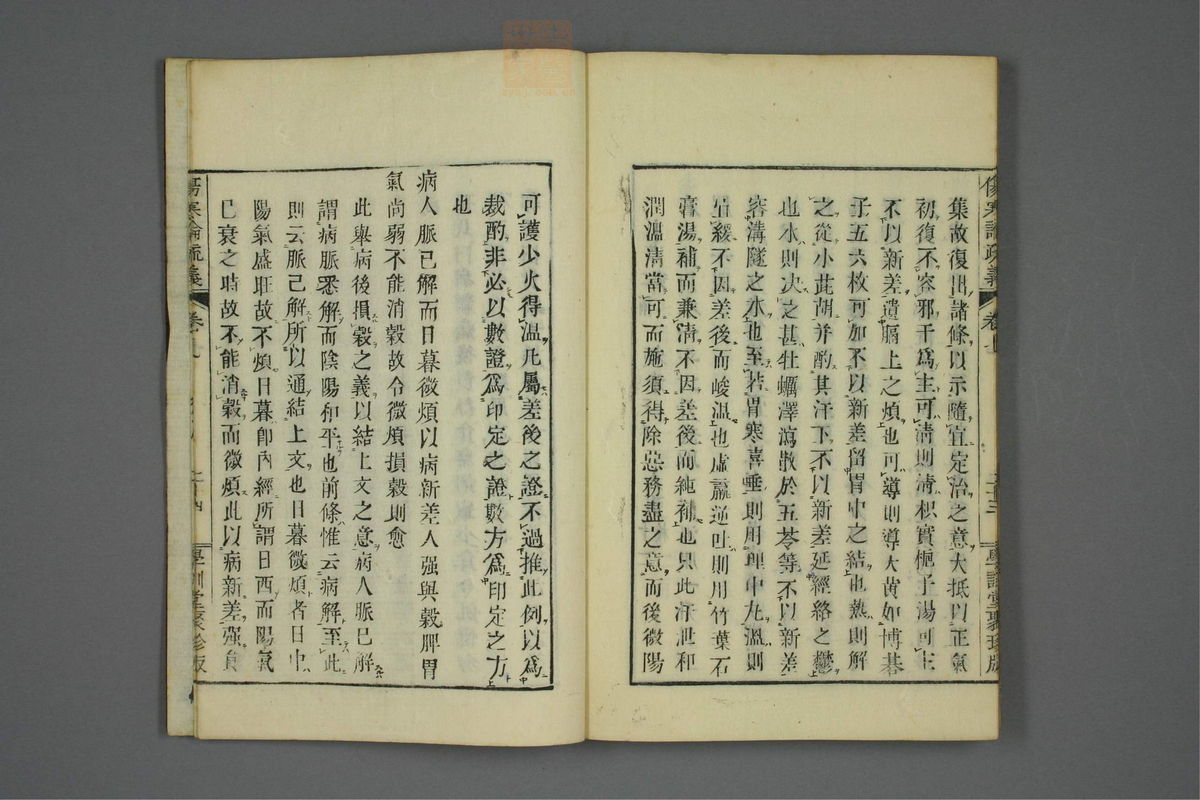 集故復出諸條以示隨宜定治之意大抵以正氣
初復不容邪干爲主可淸則淸枳實梔子湯可主
不以新差遺膈上之煩也可導則導大黃如博碁
子五六枚可加不以新差留胃中之結也熱則解
之從小茈胡并酌其汗下不以新差延經絡之鬱
也水則決之甚牡蠣澤瀉散於五苓等不以新差
容溝隧之水也至若胃寒喜唾則用理中丸溫則
宜緩不因差後而峻溫也虛羸逆吐則用竹葉石
膏湯補而兼淸不因差後而純補也只此汗泄和
潤溫清當可而施須得除惡務盡之意而後微陽
可護少火得溫凡屬差後之證不過推此例以爲
裁酌非必以數證爲印定之證數方爲印定之方
也
病人脈已解而日暮微煩以病新差人强與穀脾胃
氣尚弱不能消穀故令微煩損穀則愈
此舉病後損穀之義以結上文之意病人脈已解
謂病脈悉解而陰陽和平也前條惟云病解至此
則云脈已解所以通結上文也日暮微煩者日中
陽氣盛旺故不煩日暮卽內經所謂日西而陽氣
已衰之時故不能消穀而微煩此以病新差强食
傷寒論疏義
卷
學訓堂聚珍版